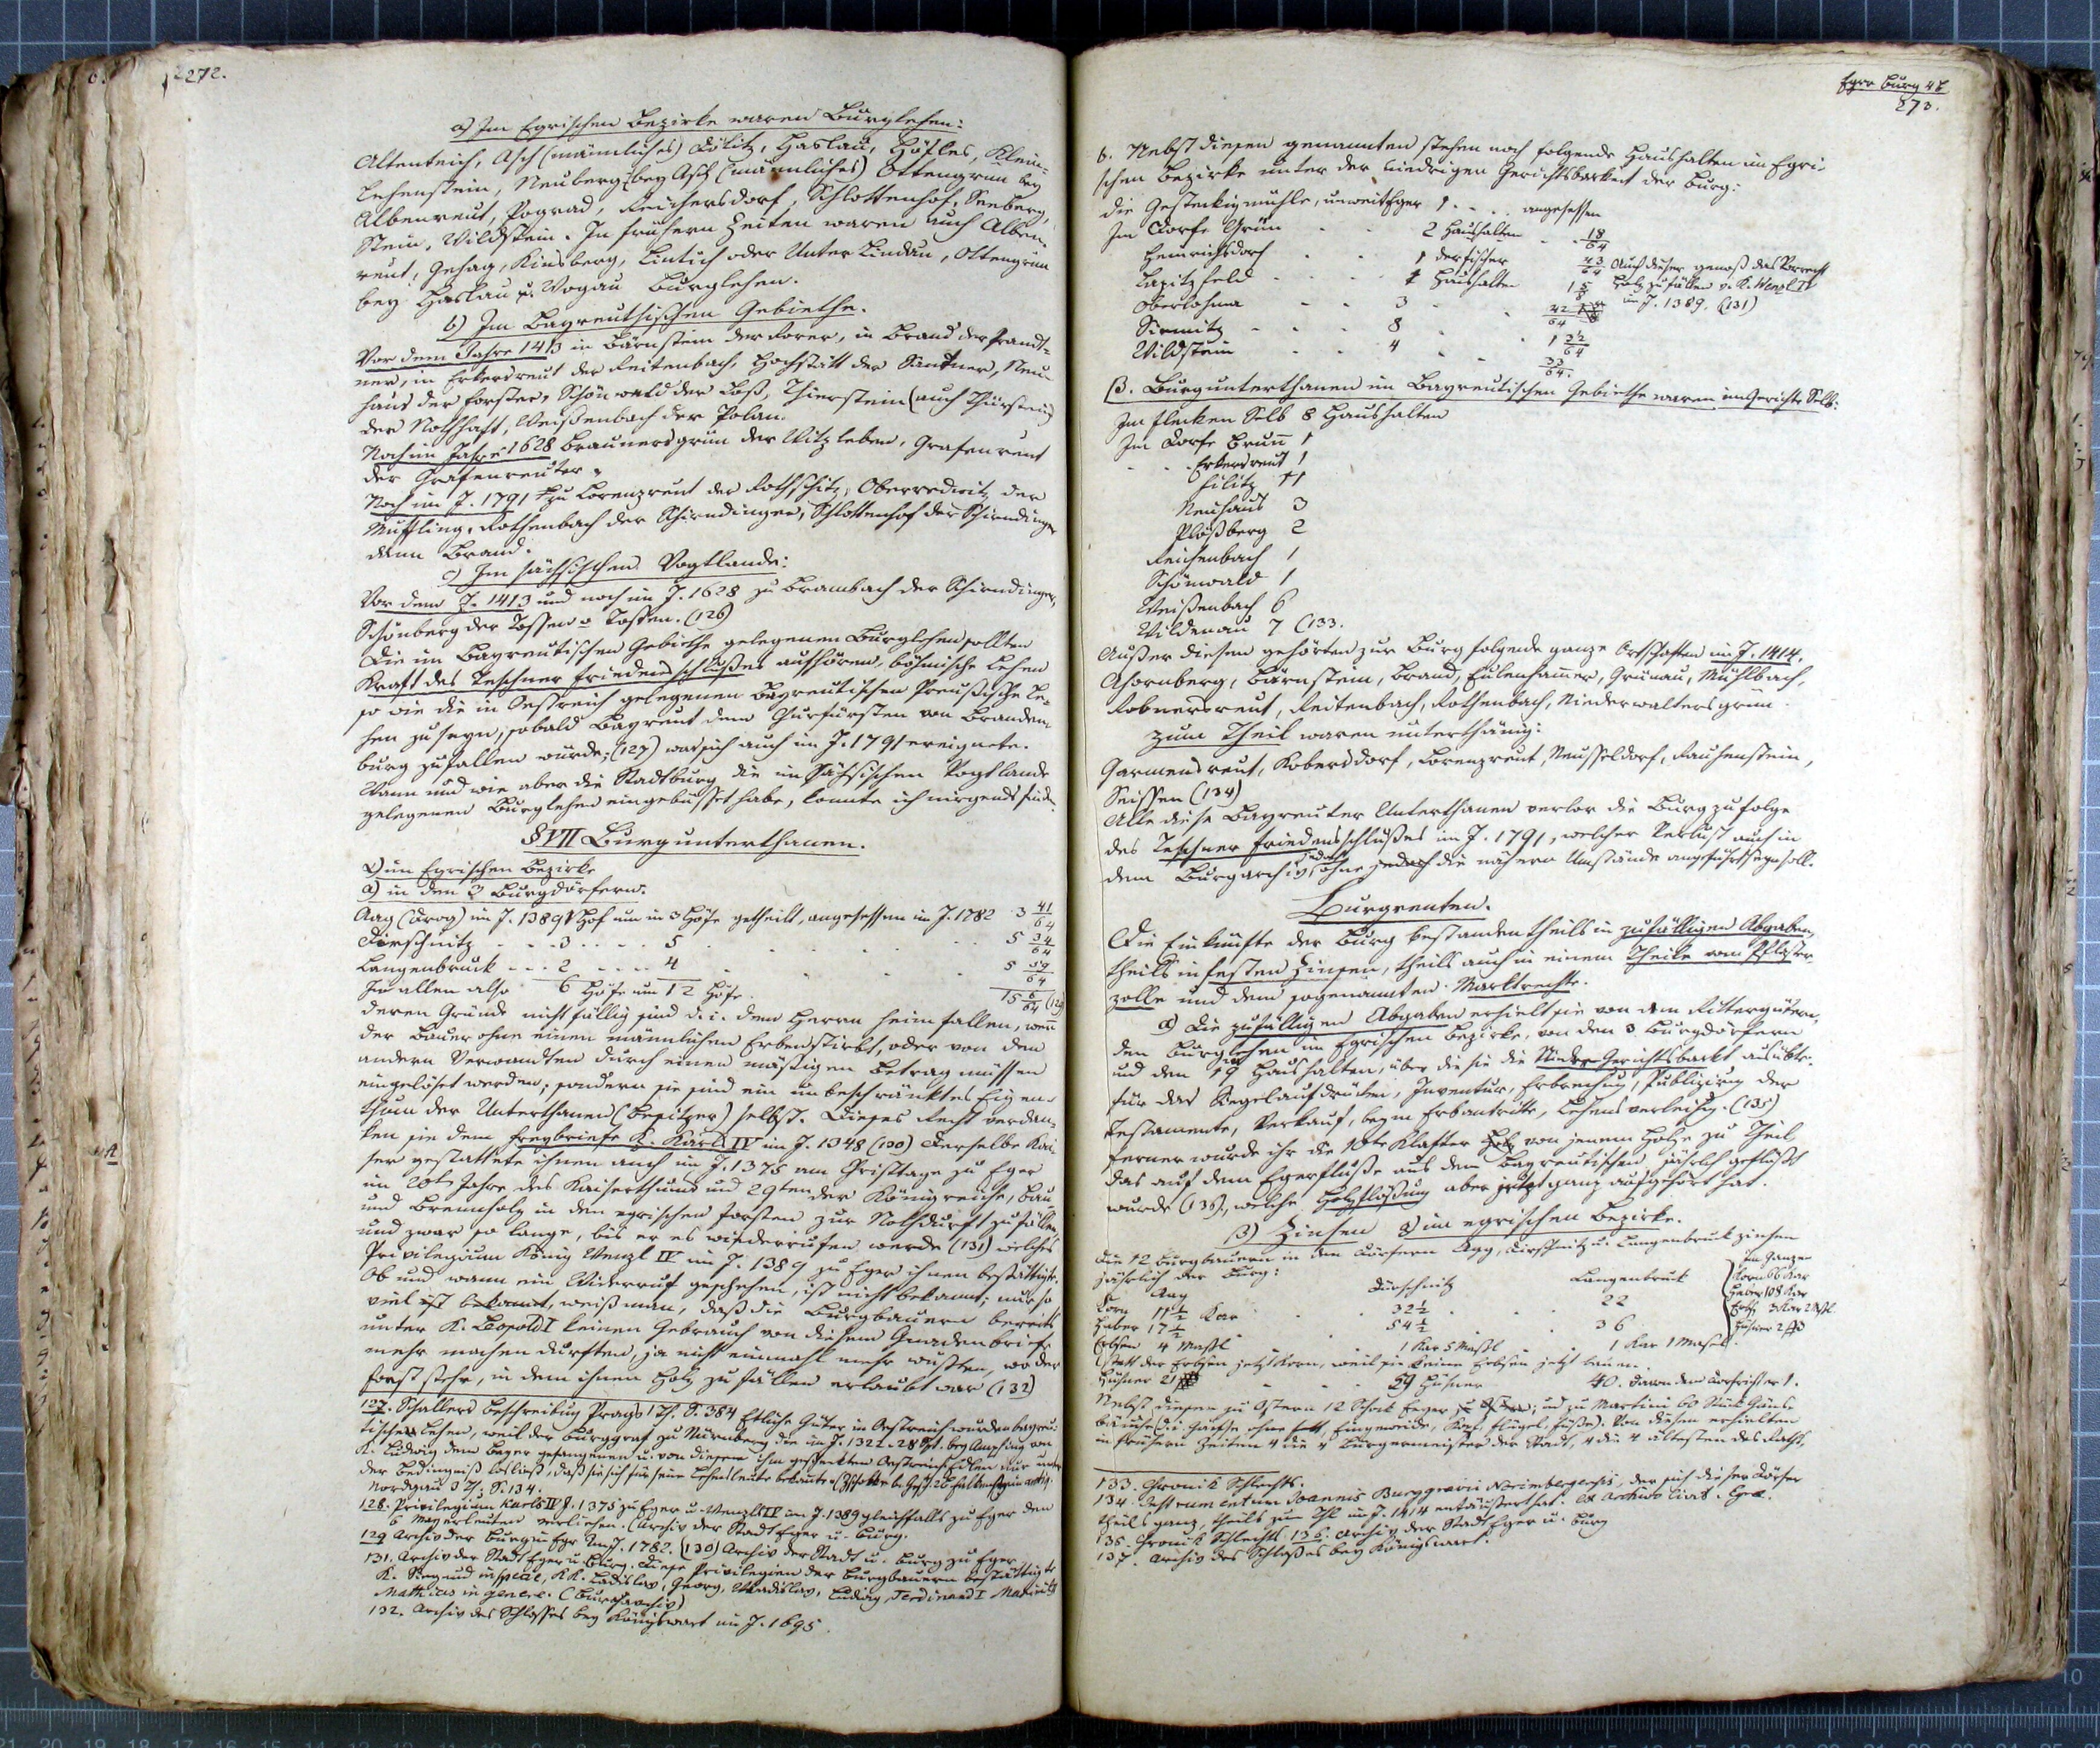 272.
a) Im Egrischen Bezirke waren Burglehen:
Altenteich, Asch (männliches) Dölitz, Haslau, Höfles, Klein-
lehenstein, Neuberg bey Asch (männliches) Ottengrün bey
Albenreut, Pograd, Reichersdorf, Schlottenhof, Seeberg,
Stein, Wildstein. In frühern Zeiten waren auch Alben-
reut, Gehag, Kinsberg, Lintich oder Unter Lindau, Ottengrün
bey Haslau u. Wogau Burglehen.
b) Im Bayreuthischen Gebiethe.
Vor dem Jahre 1413 in Bärnstein der Forer, in Brand der Brandt-
ner, in Erkersreut der Reitenbach, Hochstätt der Santner, Neu-
haus der Forster, Schönwald der Loß, Thierstein (auch Thürstein)
der Nothhaft, Weißenbach der Polan.
Noch im Jahre 1628 Braunersgrün der Witzleben, Grafenreut
der Grafenreuter.
Noch im J. 1791 zu Lorenzreut der Rothschitz, Oberredwitz der
Müffling, Rothenbach der Schirndinger, Schlottenhof der Schirndinger
dann Brand.
c) Im sächsischen Vogtlande:
Vor dem J. 1413 und noch im J. 1628 zu Brambach der Schirndinger,
Schönberg der Tossen o Tossen. (126)
Die im Bayreutischen Gebiethe gelegenen Burglehen sollten
Kraft des Teschner Friedensschlußes aufhören, böhmische Lehen
so wie die in Oestreich gelegenen Bayreutischen Preußische Le-
hen zu seyn, sobald Bayreut dem Churfürsten von Branden-
burg zufallen würde; (127) was sich auch im J. 1791 ereignete.
Wann und wie aber die Stadtburg die im Sächsischen Vogtlande
gelegenen Burglehen eingebüsset habe, konnte ich nirgends finden.
§ VII Burgunterthanen.
α) im Egrischen Bezirke
a) in den 3 Burgdörfern.
Aag (Drog) im J. 1389 1 Hof nun in 3 Höfe getheilt, angesessen im J. 1782 3 41/64
Dirschnitz - - - 3 . . . . 5 5 34/64
Langenbruck - - . 2 . . . . 4 5 59/64
In allen also 6 Höfe nun 12 Höfe. 15 6/64
deren Gründe nicht fällig sind d. i. dem Herrn heimfallen, wen
der Bauer ohne einen männlichen Erben stirbt, oder von den
andern Verwandten durch einen mäßigen Betrag müssen
eingelöset werden; sondern sie sind ein unbeschränktes Eigen-
thum der Unterthanen (Besitzer) selbst. Dieses Recht verdan-
ken sie dem Freybriefe K. Karls IV im J. 1348 (130) Derselbe Kai-
ser gestattete ihnen auch im J. 1375 am Christtage zu Eger
im 20t Jahre des Kaiserthums und 29ten der Königreiche, Bau-
und Brennholz in den egrischen Forsten zur Nothdurft zu fällen
und zwar so lange, bis er es wiederrufen werde (131) welches
Privilegium König Wenzl IV im J. 1389 zu Eger ihnen bestättigte.
Ob und wann ein Widerruf geschehen, ist nicht bekannt; nur so
viel ist bekannt, weiß man, daß die Burgbauern bereits
unter K. Leopold I keinen Gebrauch von diesem Gnadenbriefe
mehr machen durften, ja nicht einmahl mehr wusten, wo der
Forst stehe, in dem ihnen Holz zu fällen erlaubt war (132)
127. Schallers Beschreibung Prags 1 Th. S. 384 Etliche Güter in Oestreich wurden bayreu-
tische Lehen, weil der Burggraf zu Nürnberg die im J. 1322 28 Spt. bey Ampfing von
K. Ludwig dem Bayer gefangenen u. von diesem ihm geschenkten Oestreich Edlen nur unter
der Bedingniß losließ, daß sie sich für seine Lehensleute bekannten
Nordgau 3 Th. S. 134.
128. Privilegium Karls IV J. 1375 zu Eger u. Wenzls IV im J. 1389 gleichfalls zu Eger den
6 Mayerleuten verliehen. (Archiv der Stadt Eger u. Burg.
129 Archiv der Burg zu Eger im J. 1782. (130) Archiv der Stadt u. Burg zu Eger
131. Archiv der Stadt Eger u. Burg. Diese Privilegien der Burgbauern bestättigte
K. Siegmund in specie, KK. Ladislav, Georg, Wladislav, Ludwig, Ferdinand I
Mathias in genere. (Burgarchiv)
132. Archiv des Schlosses bey Königswart im J. 1695.
Eger Burg 48
273.
b. Nebst diesen genannten stehen noch folgende Haushalten im Egri-
schen Bezirke unter der niedrigen Gerichtsbarkeit der Burg:
die Gesteckigmühle, unweit Eger 1 . . . . angesessen
Im Dorfe Grün . . . 2 Haushalten . . 18/64
Heinrichsdorf . . 1 der Fischer 43/64 Auch dieser genoß das Vorrecht
Lapitzfeld . . . 1 Haushalten 1 5/8 Holz zu fällen v. K. Wenzl IV
Oberlohma . . 3 . . 42/64 im J. 1389. (131)
Sirmitz . . . 8 . . 1 32/64
Wildstein . . 4 . . 33/64.
β. Burgunterthanen im Bayreutischen Gebiethe waren im Gerichte Selb:
Im Flecken Selb 8 Haushalten
Im Dorfe Brunn 1
- - Erkersreut 1
Filitz 1
Neuhaus 3
Plößberg 2
Reichenbach 1
Schönwald 1
Weißenbach 6
Wildenau 7 (133.
Außer diesen gehörten zur Burg folgende ganze Ortschaften im J. 1414.
Ahornberg, Bärnstein, Brand, Eulenhammer, Grünau, Mühlbach,
Robnersreut, Reitenbach, Rothenbach, Niederwaltersgrün
zum Theil waren unterthänig:
Garmensreut, Kobersdorf, Lorenzreut, Neusseldorf, Rauhenstein,
Seissen (134)
Alle diese Bayreuter Unterthanen verlor die Burg zu folge
des Teschner Friedensschlußes im J. 1791, welcher Verlust auch in
dem Burgarchiv, jedoch ohne die nähern Umstände angeführt seyn soll.
Burgrenten.
Die Einkünfte der Burg bestanden theils in zufälligen Abgaben,
theils in festen Zinsen, theils auch in einem Theile vom Pflaster-
zolle und dem sogenannten Marktrechte.
α) Die zufälligen Abgaben erhielt sie von den Rittergütern,
den Burglehen im Egrischen Bezirke, von den 3 Burgdörfern
und den 19 Haushalten, über die sie die Nieder Gerichtsbarkt ausübte.
für das Siegelaufdrüken, Inventur, Erbrechung, Publizirung der
Testamente, Verkauf, beym Erbantritte, Lehensverleihg. (135)
Ferner wurde ihr die 10te Klafter Holz von jenem Holze zu Theil
das auf dem Egerflusse aus dem Bayreutischen jährlich geflößt
wurde (136), welche Holzflößung aber jetzt ganz aufgehört hat.
β) Zinsen α) im egrischen Bezirke.
Die 12 Burgbauern in den Dörfern Agg, Dirschnitz u. Langenbruk zinsen
jährlich der Burg: im Ganzen
Aag Dürschnitz Langenbruck Korn 66 Kar
Korn 11 1/2 Kar 32 1/2 22 Haber 108 Kar
Haber 17 1/2 . 54 1/2 . 36 Erbs 3 Kar 2 Mßl
Erbsen 4 Maßl . 1 Kar 5 Maßl . 1 Kar 1 Massl.
(statt der Erbsen jetzt Korn, weil sie keine Erbsen jetzt bauen.
Hühner 21 . . 59 Hühner 40. davon dem Dorfrichter 1.
Nebst diesen zu Ostern 12 Schock Eyer; und zu Martini 60 Stück Gäns-
bäuche (d. i. Gänse ohne Fett, Eingeweide, Kopf, Flügel, Füße). Von diesen erhielten
in frühern Zeiten 4 die 4 Bürgermeister der Stadt, 4 die 4 ältesten des Raths,
133. Chronik Schlechts.
134. Instrumentum Joannis Burggravii Norimbergensis, der sich dieser Dörfer
theils ganz, theils zum Thl im J. 1414 entäußert hat. Ex Archivo Civit. Egrae.
135. Chronik Schlechts. 136. Archiv der Stadt Eger u. Burg
137. Archiv des Schloßes bey Königswart.